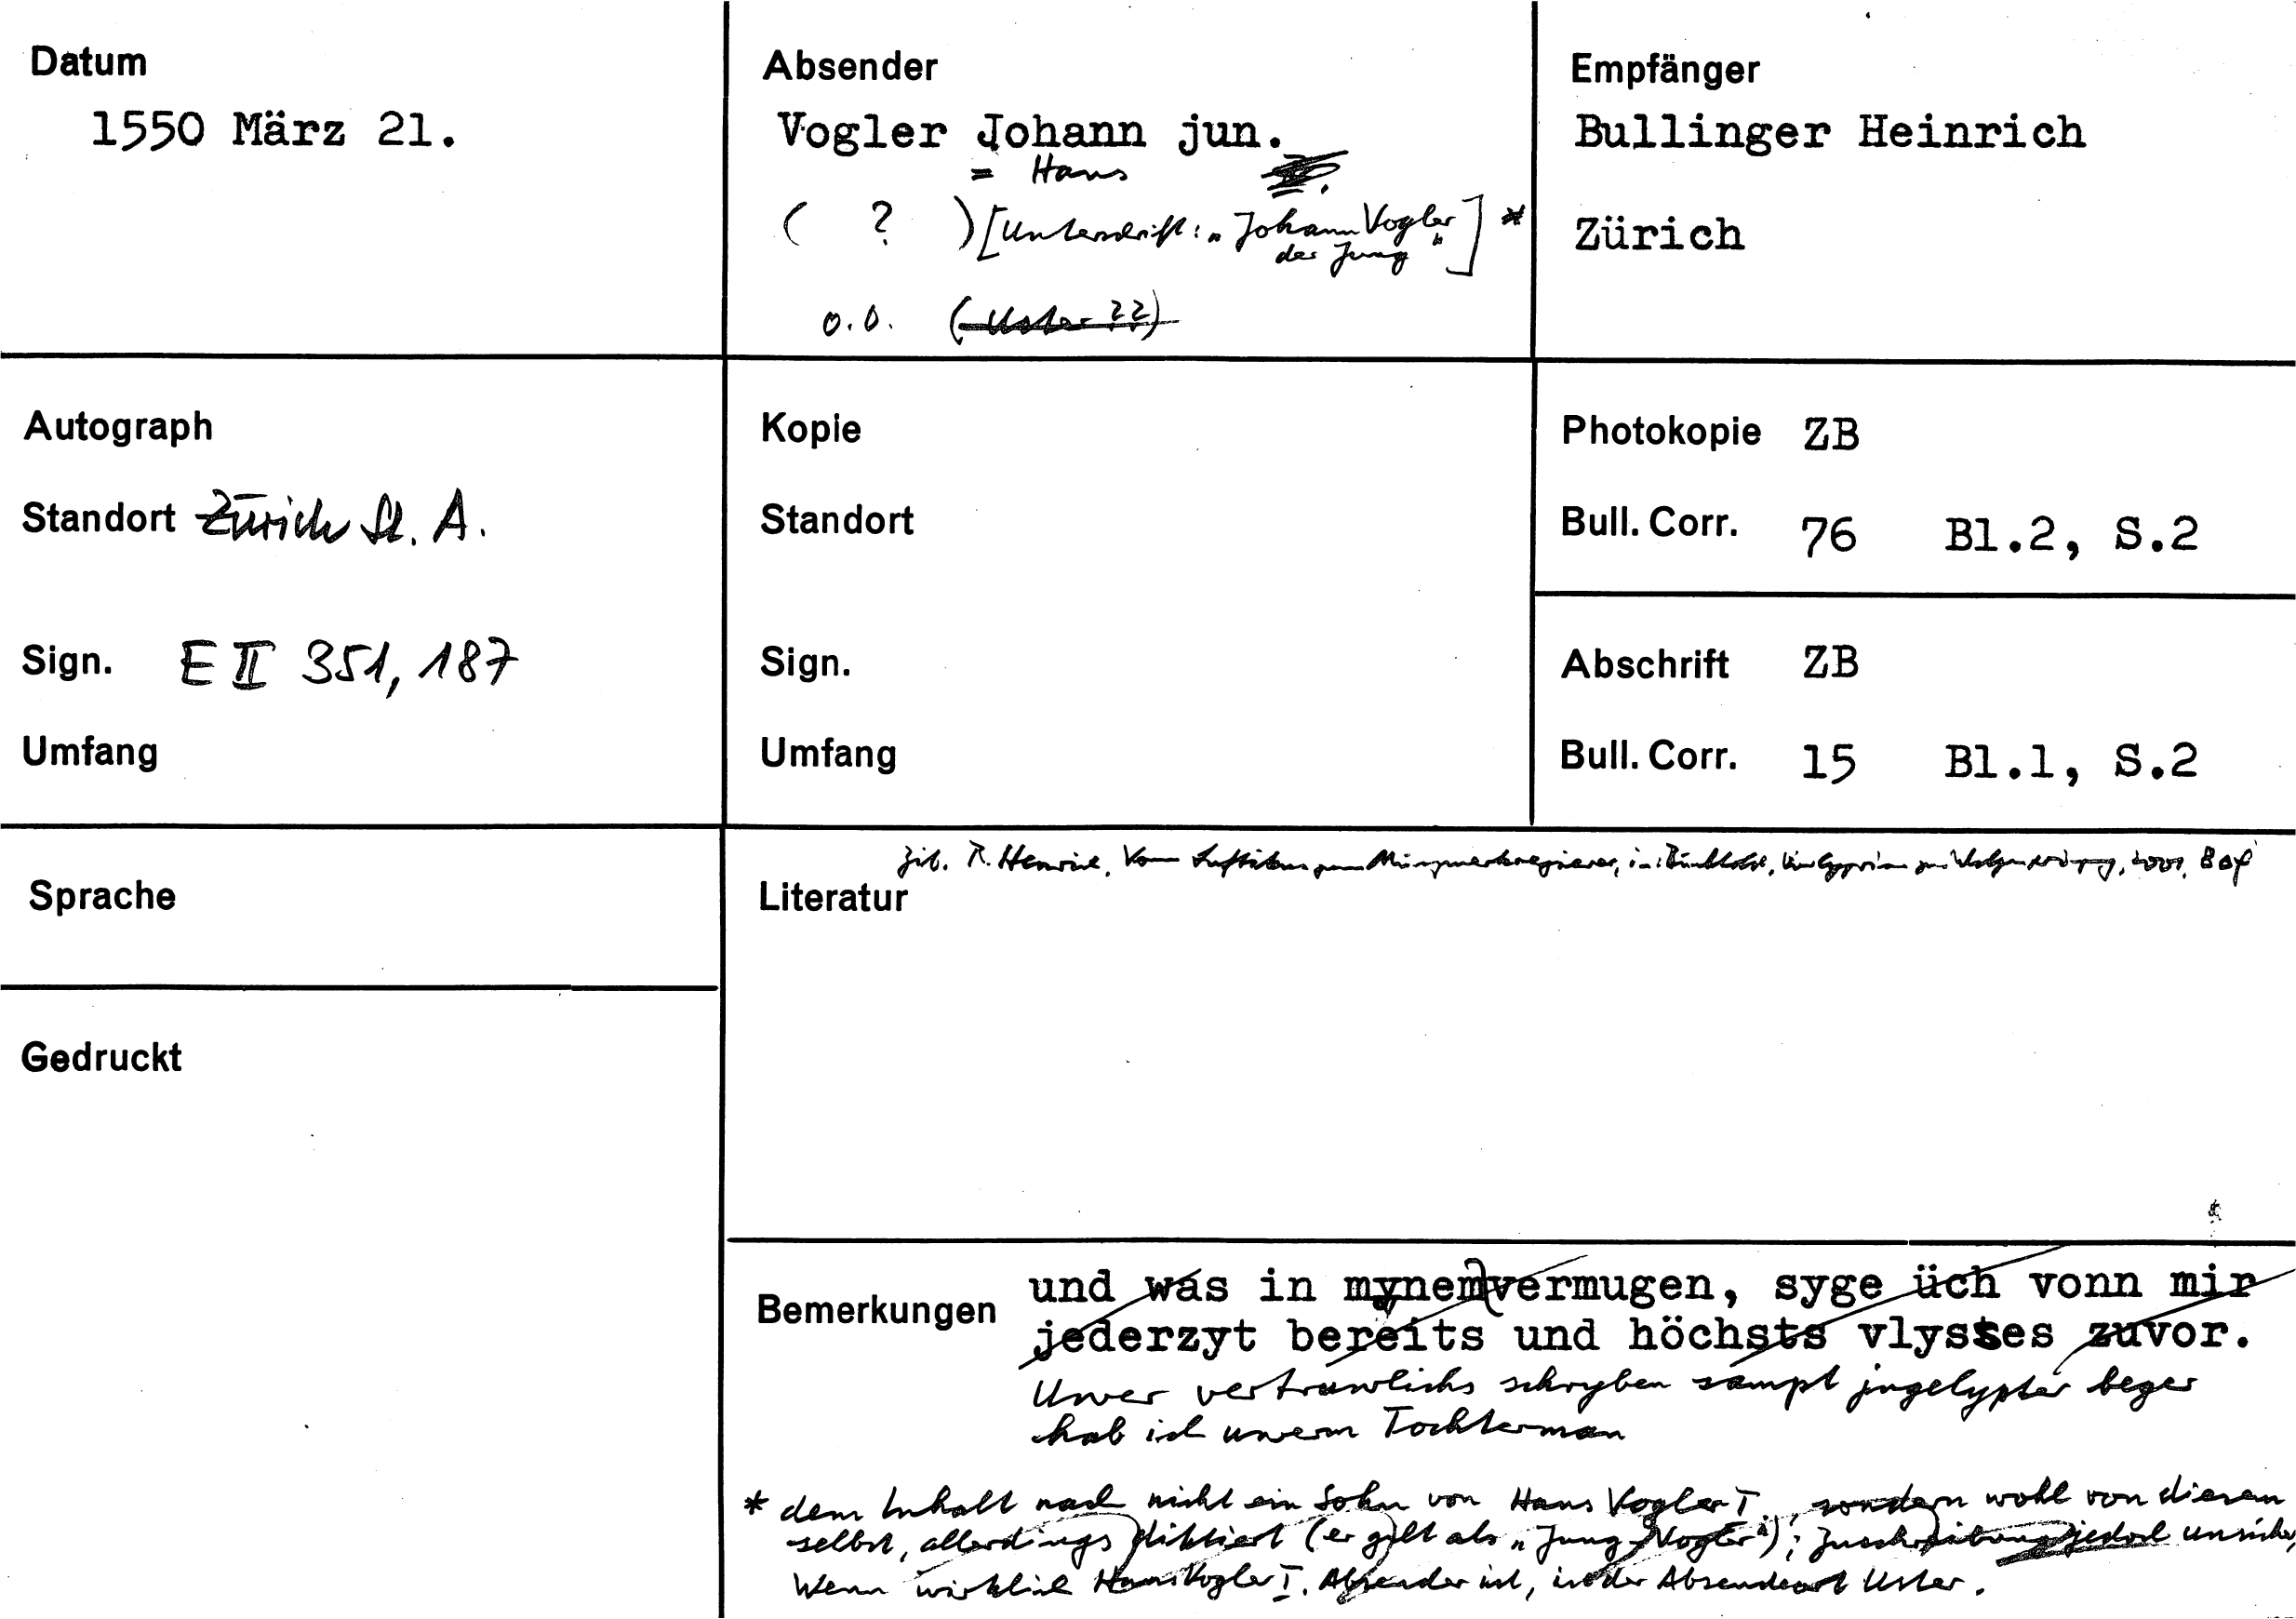 Datum
1550 März 21.
Absender
Vogler Johann jun.
= Hans
( ? ) [Unterschrift: „Johann Vogler
der Jung“] *
o.O. (Uster ??)
Empfänger
Bullinger Heinrich
Zürich
Autograph
Standort Zürich St. A.
Sign. E II 351, 187
Umfang
Kopie
Standort
Sign.
Umfang
Photokopie ZB
Bull. Corr. 76 Bl.2, S.2
Abschrift ZB
Bull. Corr. 15 Bl.1, S.2
Sprache
Gedruckt
Zit. R. Henrich, Vom zum in: 80f
Literatur
Bemerkungen
und was in mynem vermugen, syge üch vonn mir
jederzyt bereits und höchsts vlysses zuvor.
Uwer vertruwlichs schryben sampt beger
hab ich uwerm Tochterman
* dem Inhalt nach nicht ein Sohn von Hans Vogler I, sondern wohl von diesem
selbst, allerdings diktiert (er gilt als „Jung Vogler“); Zuschreibung jedoch unsicher,
Wenn wirklich Hans Vogler I. Absender ist, ist der Absendeort Uster.